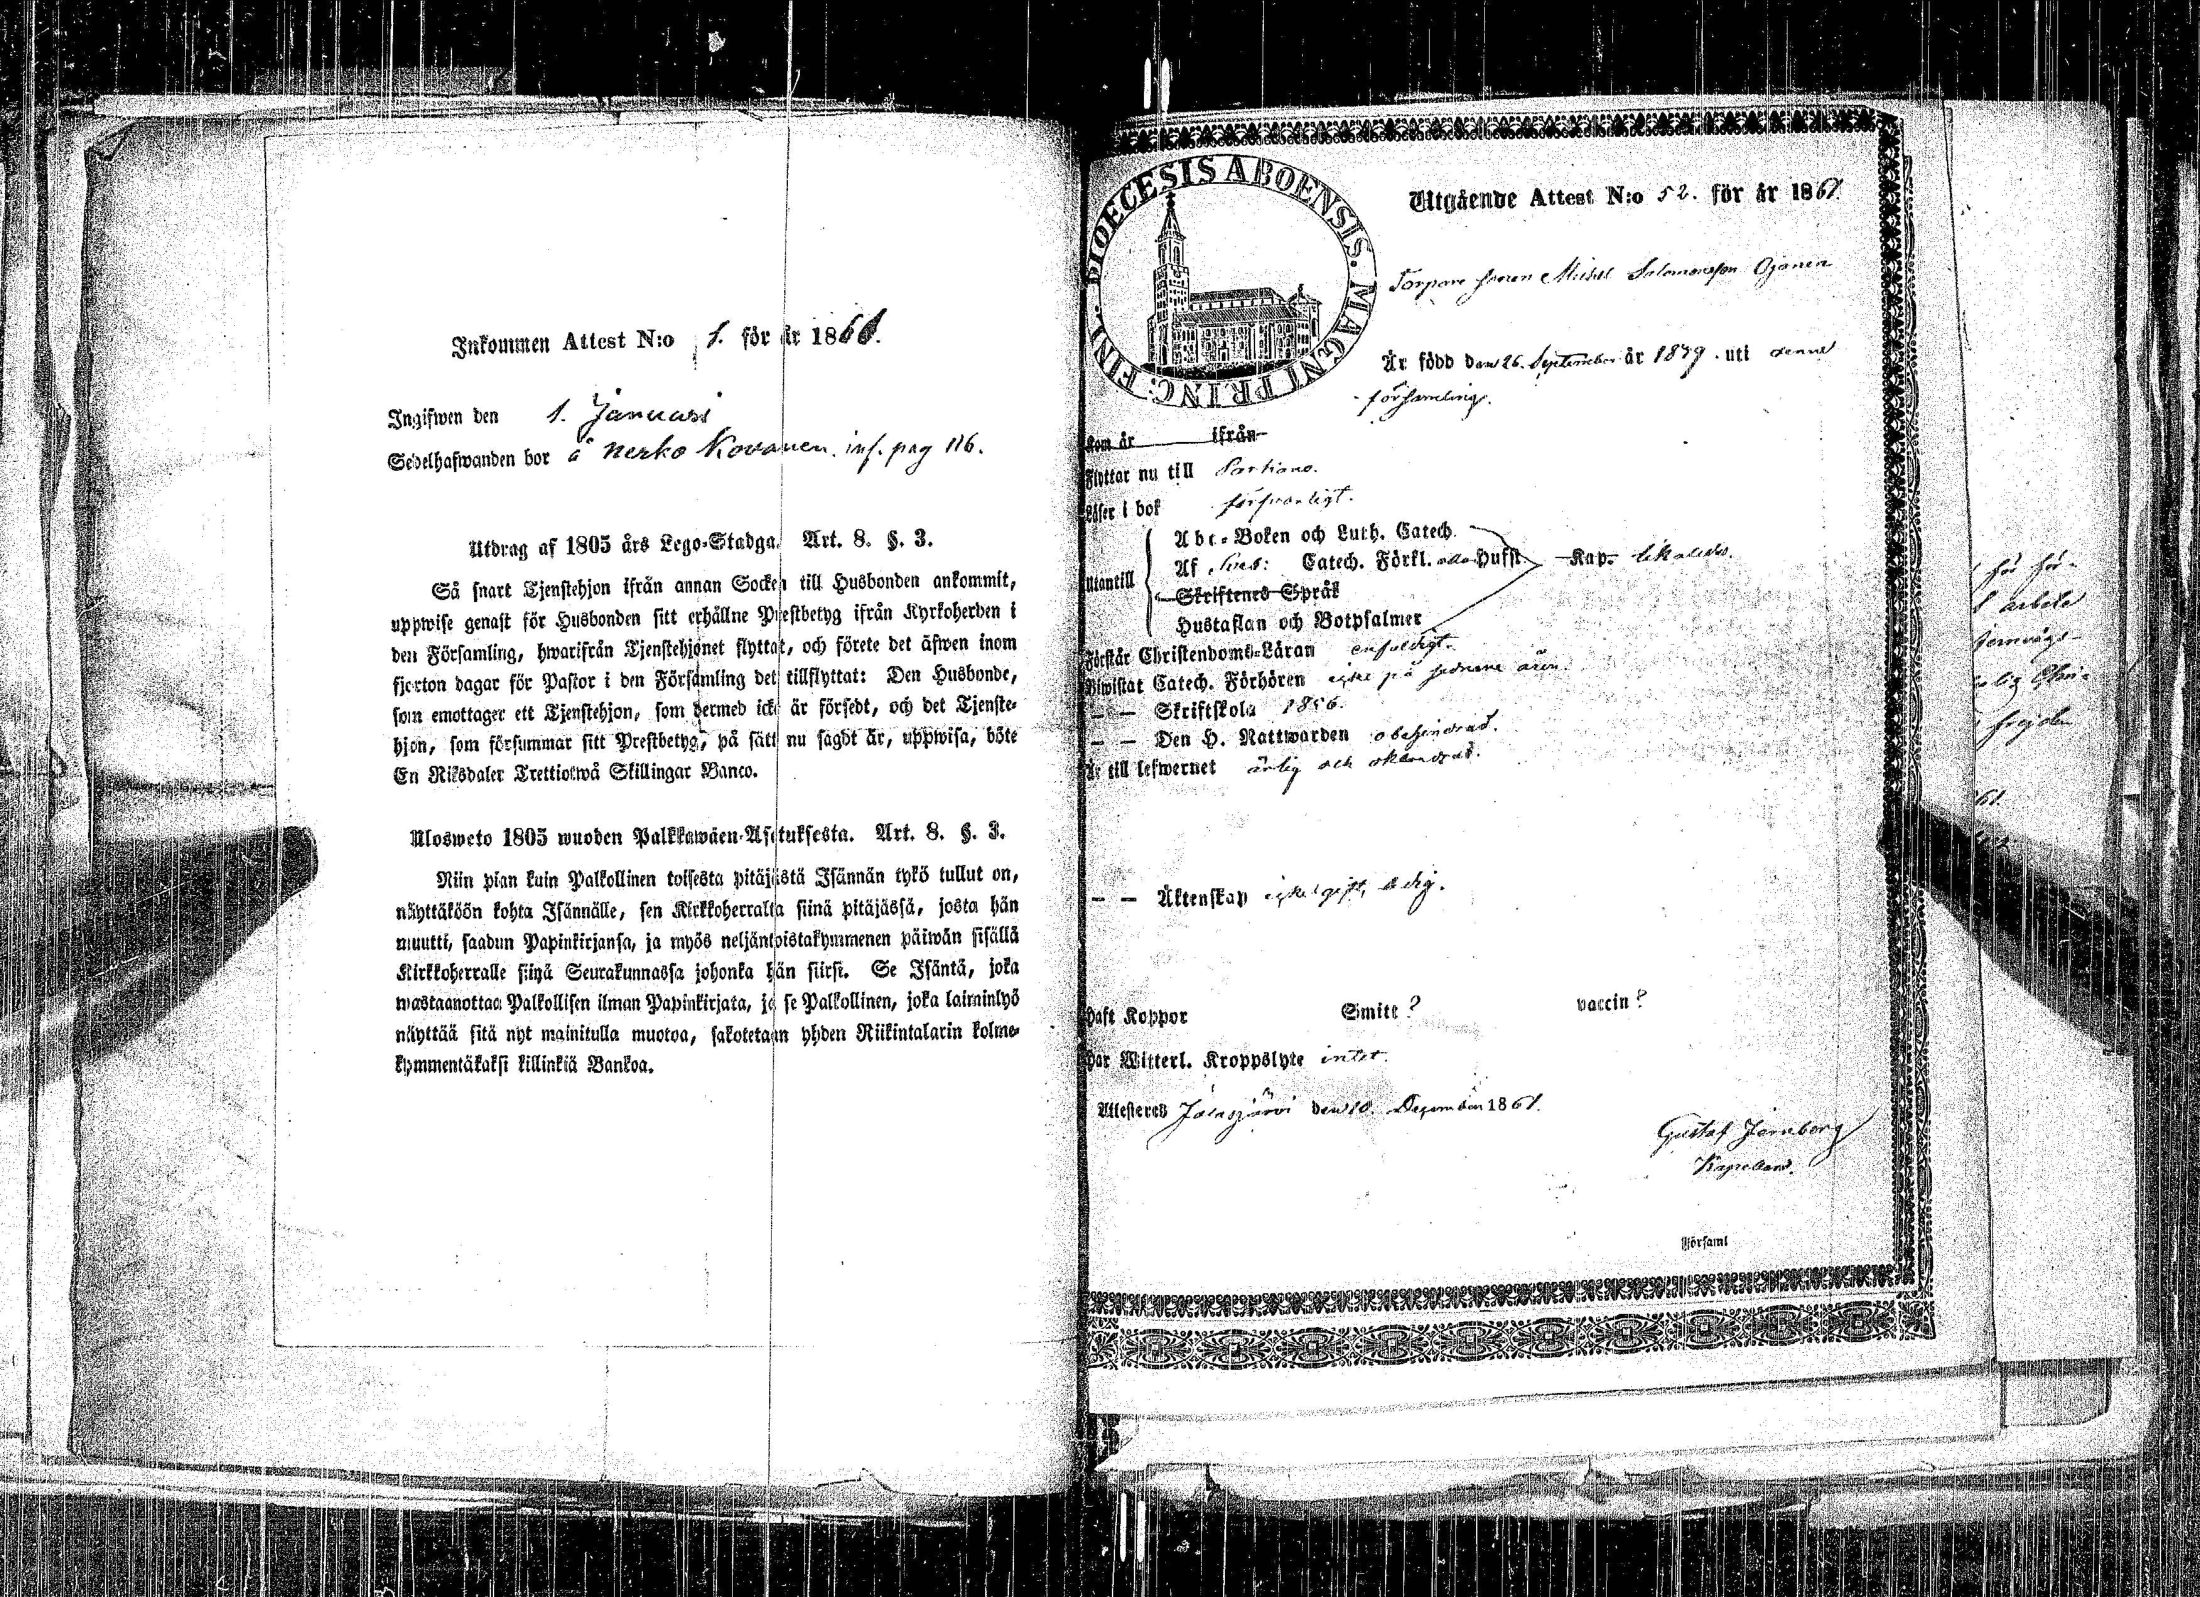 Inkommen Attest N:o 1. för år 1861.
Ingifwen den 1. Januari
Sedelhafwanden bor å Nerko Kovanen. inf. pag 116.
Utdrag af 1805 års Lego-Stadga. Art. 8. §. 3.
Så snart Tjenstehjon ifrån annan Socken till Husbonden ankommit,
uppwise genast för Husbonden sitt erhållne Prestbetyg ifrån Kyrkoherden i
den Församling, hwarifrån Tjenstehjonet flyttat, och förete det äfwen inom
fjorton dagar för Pastor i den Församling det tillflyttat: Den Husbonde,
som emottager ett Tjenstehjon, som dermed icke är försedt, och det Tjenste-
hjon, som försummar sitt Prestbetyg, på sätt nu sagdt är, uppwisa, böte
En Riksdaler Trettiotwå Skillingar Banco.
Ulosweto 1805 wuoden Palkkawäen-Asetuksesta. Art. 8. §. 3.
Niin pian kuin Palkollinen toisesta pitäjästä Isännän tykö tullut on,
näyttäköön kohta Isännälle, sen Kirkkoherralta siinä pitäjässä, josta hän
muutti, saadun Papinkirjansa, ja myös neljäntoistakymmenen päiwän sisällä
Kirkkoherralle siinä Seurakunnassa johonka hän siirsi. Se Isäntä, joka
wastaanottaa Palkollisen ilman Papinkirjata, ja se Palkollinen, joka laiminlyö
näyttää sitä nyt mainitulla muotoa, sakotetaan yhden Riikintalarin kolme-
kymmentäkaksi killinkiä Bankoa.
DIOECESIS ABOENSIS. MAGNI PRINC: FINL.
Utgående Attest N:o 52. för år 1861.
Torpare sonen Michel Salomonsson Ojanen
Är född den 26. September år 1839. uti denna
församling.
Kom år ifrån
Flyttar nu till Parkano.
Läser i bok försvarligt.
Abc-Boken och Luth. Catech.
Utantill Af Sveb: Catech. Förkl. Hufst Kap. likaledes.
Skriftenes Språk
Hustaflan och Botpsalmer
Förstår Christendoms-Läran enfaldigt.
Biwistat Catech. Förhören icke på sednare åren.
— — Skriftskola 1856.
— — Den H. Nattwarden obehindrad.
Är till lefwernet ärlig och oklandrad.
— — Äktenskap icke gift, ledig.
Haft Koppor Smitt? vaccin?
Har Witterl. Kroppslyte intet.
Attesteres Jalasjärvi den 10. December 1861.
Gustaf Jernberg
Kapellan.
Församl